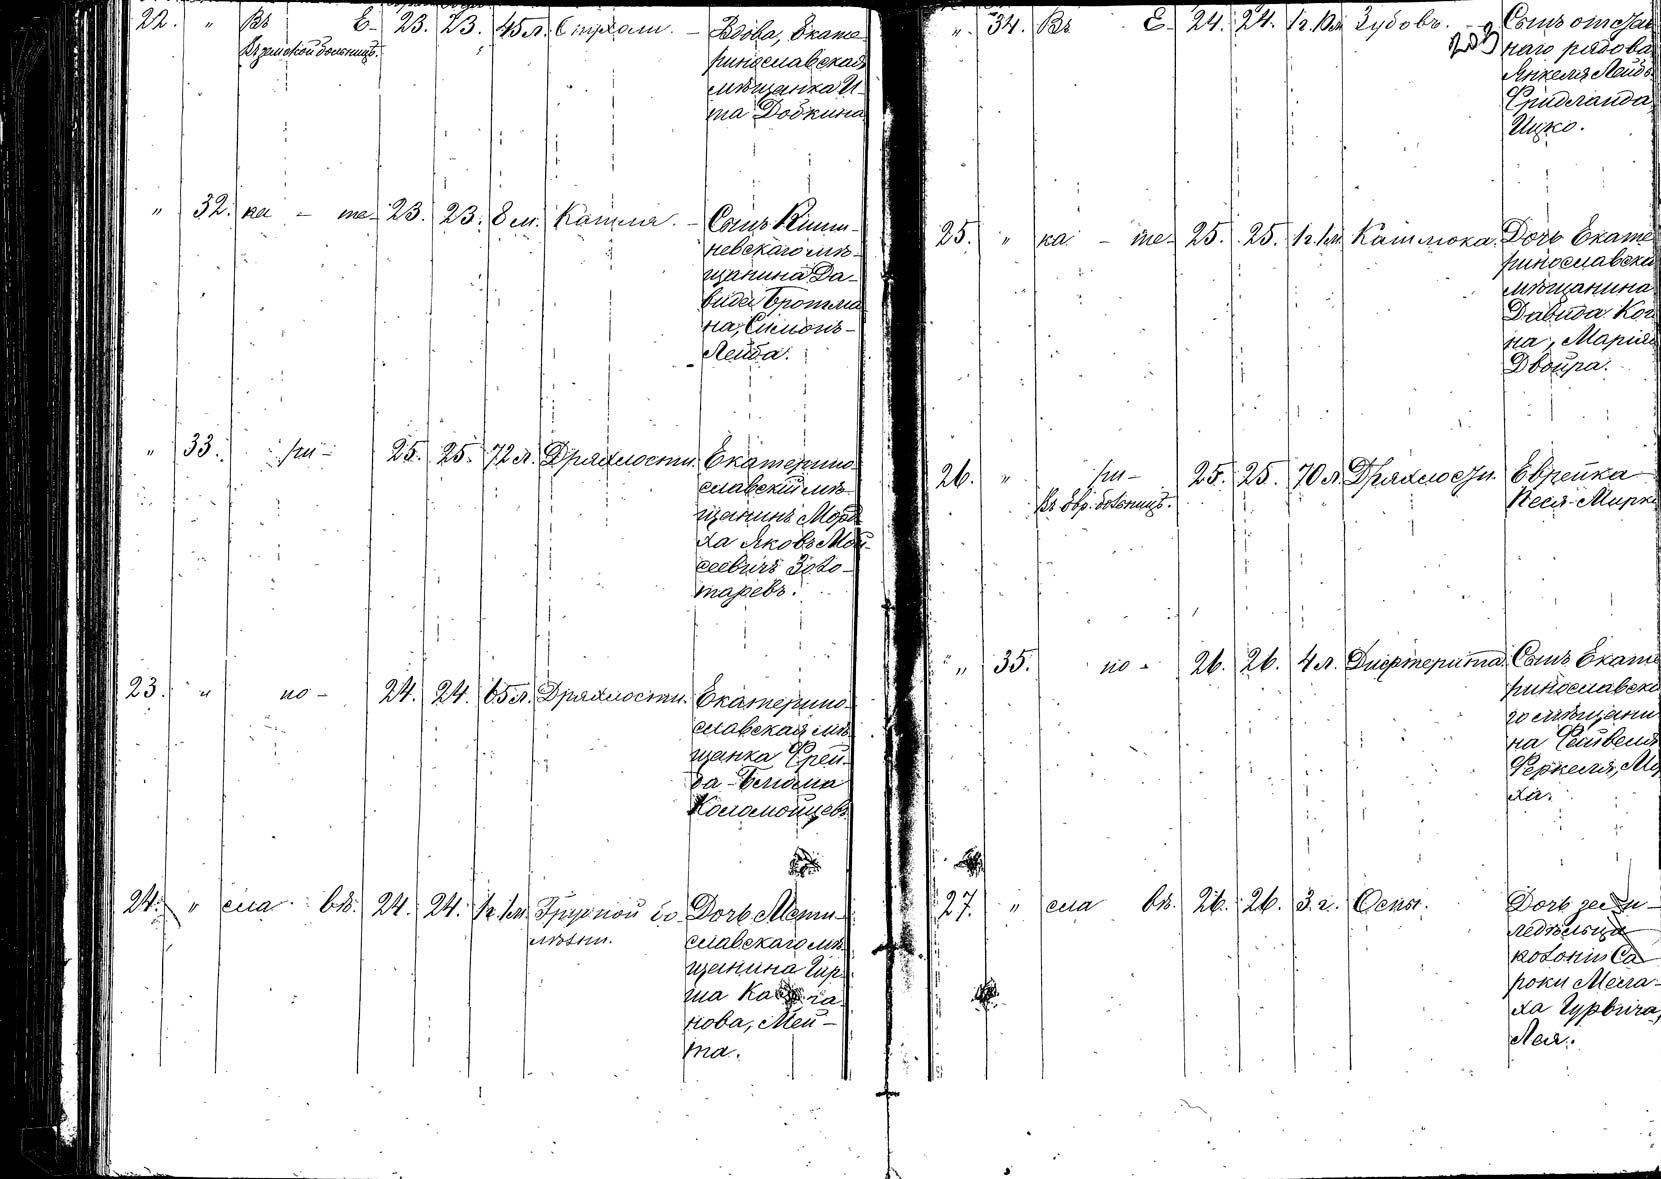 22. " Въ Е- 23. 23. 45 л.
Въ земской больницѣ.
Вдова, Екате-
ринославская
мѣщанка И-
та Добкина
" 32. ка - те- 23. 23. 8 м. Кашля. -
Сынъ Киши-
невскаго мѣ-
щанина Да-
вида Бротма
на, Симонъ-
Лейба.
" 33. ри- 25. 25. 72 л. Дряхлости.
Екатерино-
славскій мѣ-
щанинъ Мord
ха Яковъ Мой-
сеевичъ Золо-
таревъ.
23. " но- 24. 24. 65 л. Дряхлости.
Екатерино-
славская мѣ-
щанка Фрей-
да-Блюма
Коломойцева
24. " сла въ. 24. 24. 1 г. 1 м. Грудной бо-
лѣзни.
Дочь Мсти-
славскаго мѣ-
щанина Гир-
ша
нова, Мей-
та.
203
" 34. Въ Е- 24. 24. 1 г. Зубовъ. -
Сынъ отстав
наго рядова
Янкеля Лейб
Фридланда,
Ицко.
25. " ка - те- 25. 25. 1 г. 1 м. Кашлюка.
Дочь Екате
ринославска
мѣщанина
Давида Ког
на, Марія
Двойра.
26. " ри- 25. 25. 70 л. Дряхлости.
Въ Евр. больницѣ.
Еврейка
Песя-Мирка
" 35. но- 26. 26. 4 л. Дифтерита.
Сынъ Екате
ринославска
го мѣщани
на Фейвеля
Феркеля, Мо
ха.
27. " сла въ. 26. 26. 3 г. Оспы.
Дочь земл-
ледѣльца
колоніи Са
роки Мела-
ха Гурвича,
Лея.